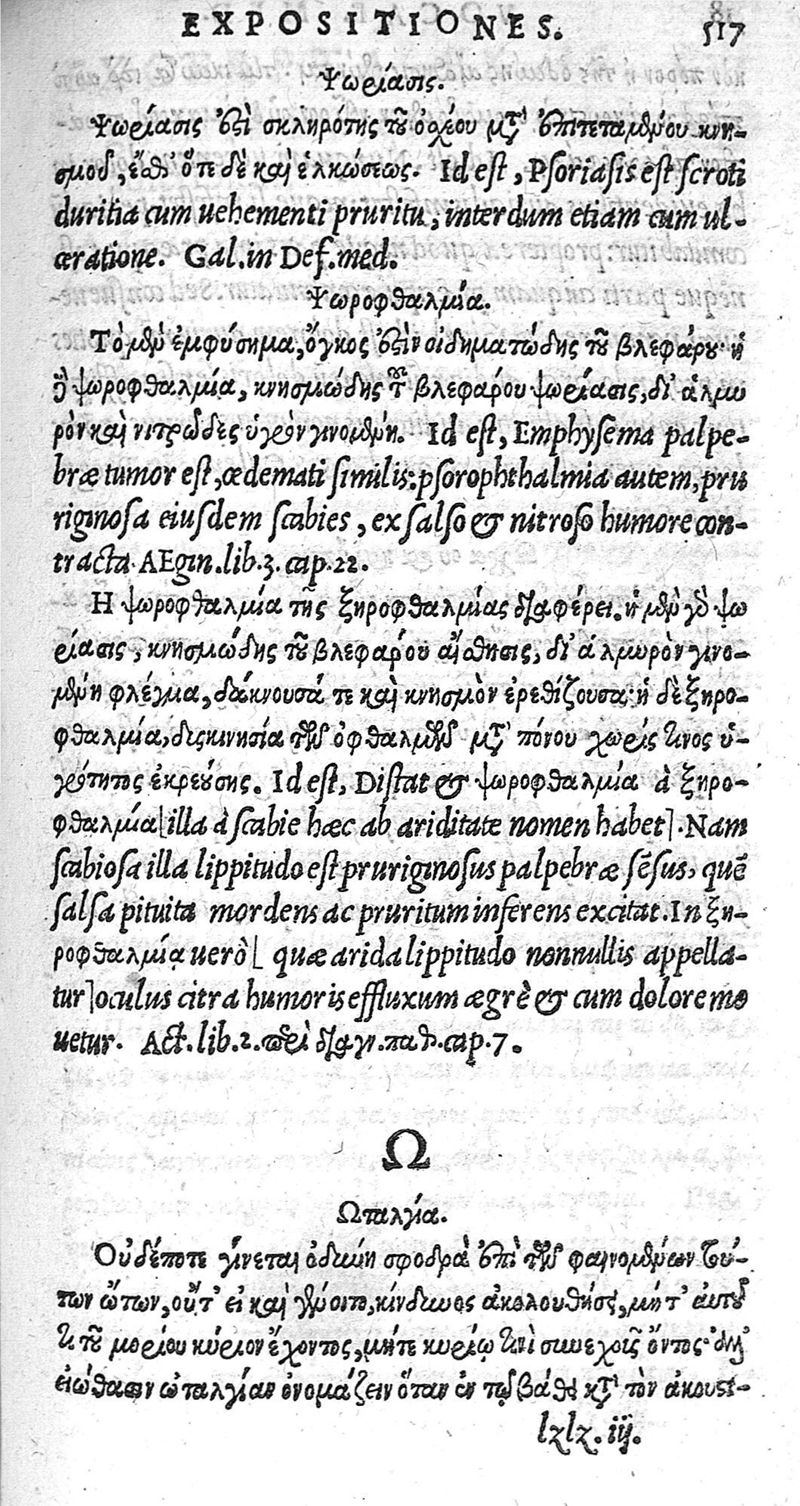 EXPOSITIONES. 517
Ψωρίασις.
Ψωρίασις ἐστὶ σκληρότης τοῦ ὀχέου μετ' ἐπιτεταμένου κνη-
σμοῦ, ἔσθ' ὅτε δὲ καὶ ἑλκώσεως. Id est, Psoriasis est scroti
duritia cum uehementi pruritu, interdum etiam cum ul-
ceratione. Gal. in Def. med.
Ψωροφθαλμία.
Τὸ μὲν ἐμφύσημα, ὄγκος ἐστὶν οἰδηματώδης τοῦ βλεφάρου· ἡ
δὲ ψωροφθαλμία, κνησμώδης τοῦ βλεφάρου ψωρίασις, δι' ἁλμυ
ρὸν καὶ νιτρῶδες ὑγρὸν γινομένη. Id est, Emphysema palpe-
bræ tumor est, œdemati similis: psorophthalmia autem, pru
riginosa eiusdem scabies, ex salso & nitroso humore con-
tracta. AEgin. lib. 3. cap. 22.
Η ψωροφθαλμία τῆς ξηροφθαλμίας διαφέρει. ἡ μὲν γὸ ψω
ρίασις, κνησμώδης τοῦ βλεφάρου αἴσθησις, δι' ἁλμυρὸν γινο-
μένη φλέγμα, δάκνουσά τε καὶ κνησμὸν ἐρεθίζουσα· ἡ δὲ ξηρο-
φθαλμία, δυσκινησία τῶν ὀφθαλμῶν μετὰ πόνου χωρίς τινος ὑ-
γρότητος ἐκρεύσης. Id est, Distat & ψωροφθαλμία à ξηρο-
φθαλμία [illa à scabie hæc ab ariditate nomen habet]. Nam
scabiosa illa lippitudo est pruriginosus palpebræ sẽsus, quẽ
salsa pituita mordens ac pruritum inferens excitat. In ξη-
ροφθαλμίᾳ uerò [ quæ arida lippitudo nonnullis appella-
tur] oculus citra humoris effluxum ægrè & cum dolore mo
uetur. Act. lib. 2. περὶ διαγν. παθ. cap. 7.
Ω
Ωταλγία.
Οὐδέποτε γίνεται ὀδύνη σφοδρὰ ἐπὶ τῶν φαινομένων τού-
των ὤτων, οὔτ' εἰ καὶ γένοιτο, κίνδυνος ἀκολουθήσει, μήτ' αὐτοῦ
τι τοῦ μορίου κύριον ἔχοντος, μήτε κυρίῳ τινὶ συνεχοῦς ὄντος· ἀλλ'
εἰώθασιν ὠταλγίαν ὀνομάζειν ὅταν ἐν τῷ βάθει κατὰ τὸν ἀκουστι-
lzlz. iij.